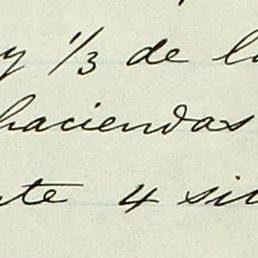 y 1/3 de l
haciendas
te 4 si